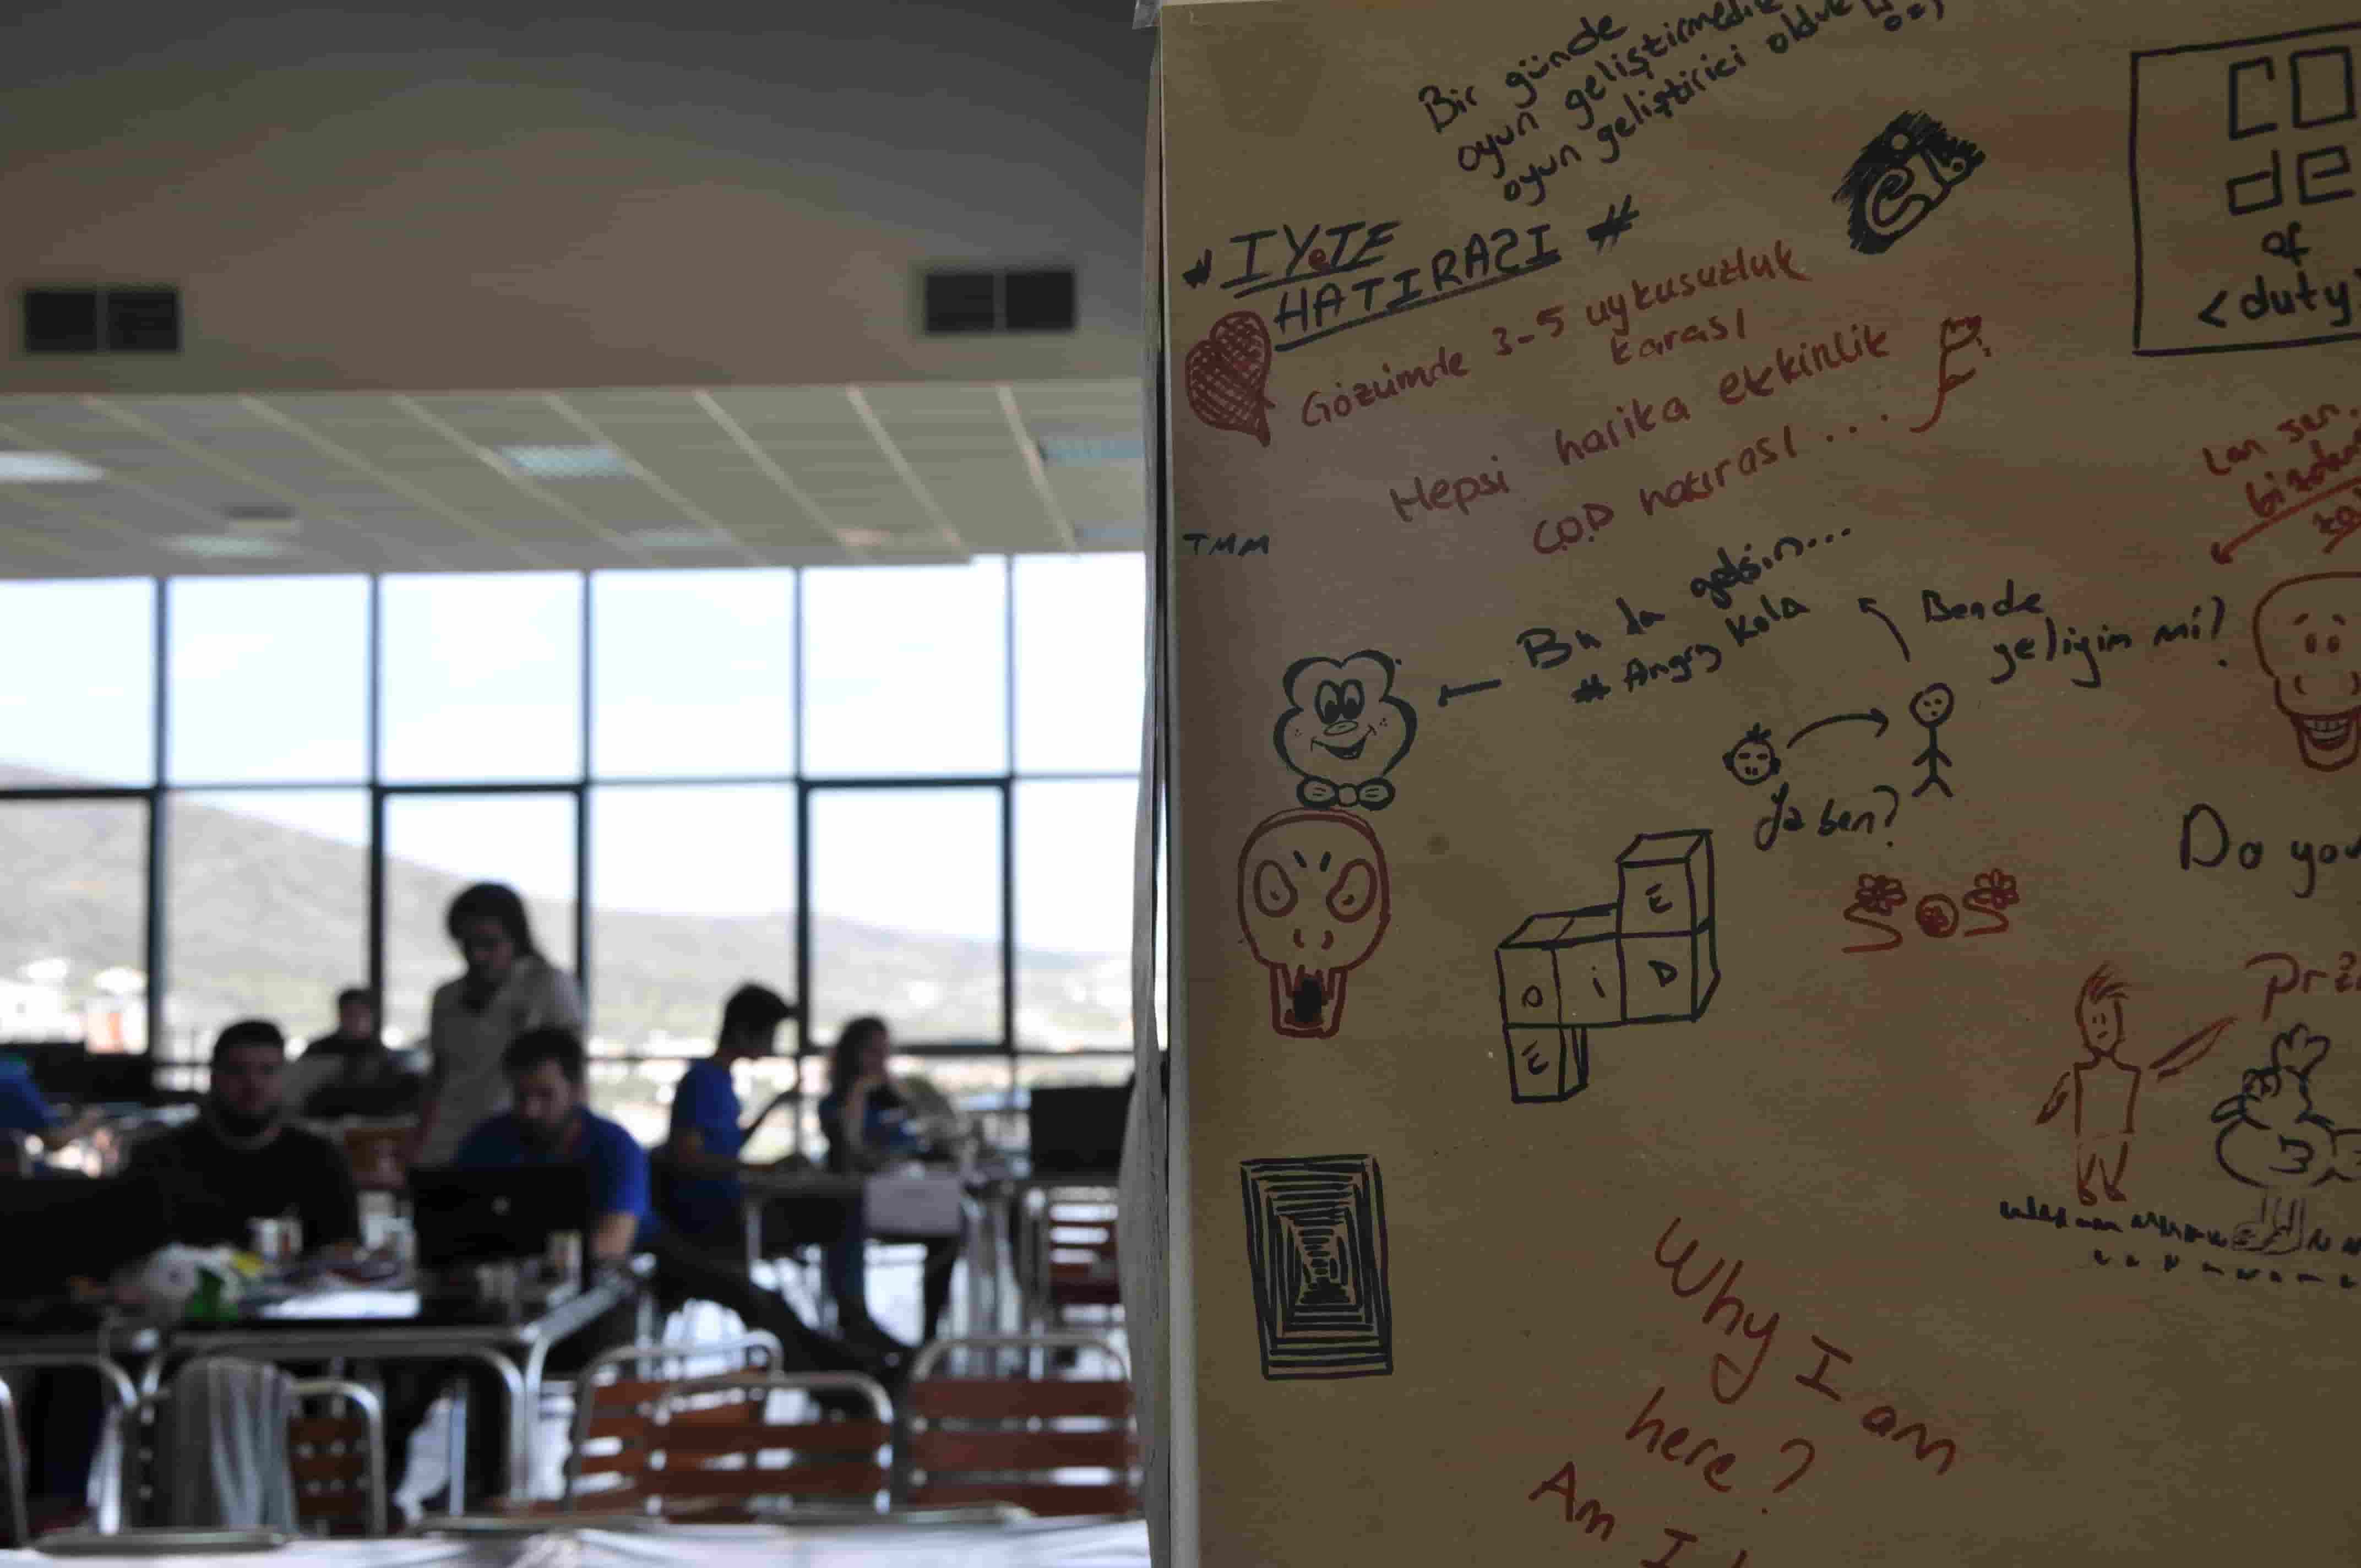 Bir günde
oyun geliştirmedik
oyun geliştirici olduk
CO
de
of
<duty
# IYeTE
HATIRASI #
Gözümde 3-5 uykusuzluk
karası
Hepsi harika etkinlik
C.O.D hatırası ...
Lan sen
TMM
Bu da gelsin...
# Angry Kola
Bende
geliyim mi?
Ya ben?
Do you
E
O İ D
E
SOS
Why I am
here?
Am I